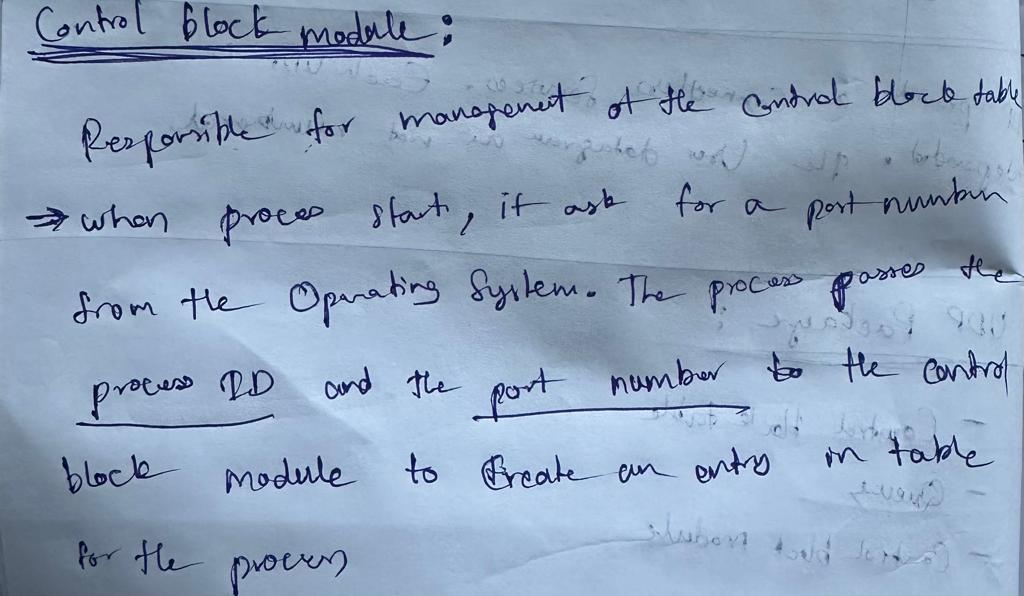 Control block module :
Responsible for management of the control block table
⇒ when process start, it ask for a port number
from the Operating System. The process passes the
process ID and the port number to the control
block module to Create an entry in table
for the process